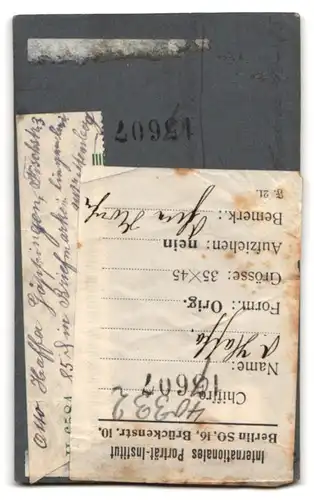 Internationales Porträt-Institut
Berlin SO. 16, Brückenstr. 10.
40392
Chiffre 13607
Name: O Haffa
Form.: Orig.
Grösse: 35×45
Aufziehen: nein
Bemerk.:
F. 21.
13607
Otto Haffa Göppingen,
85 in Briefmarken